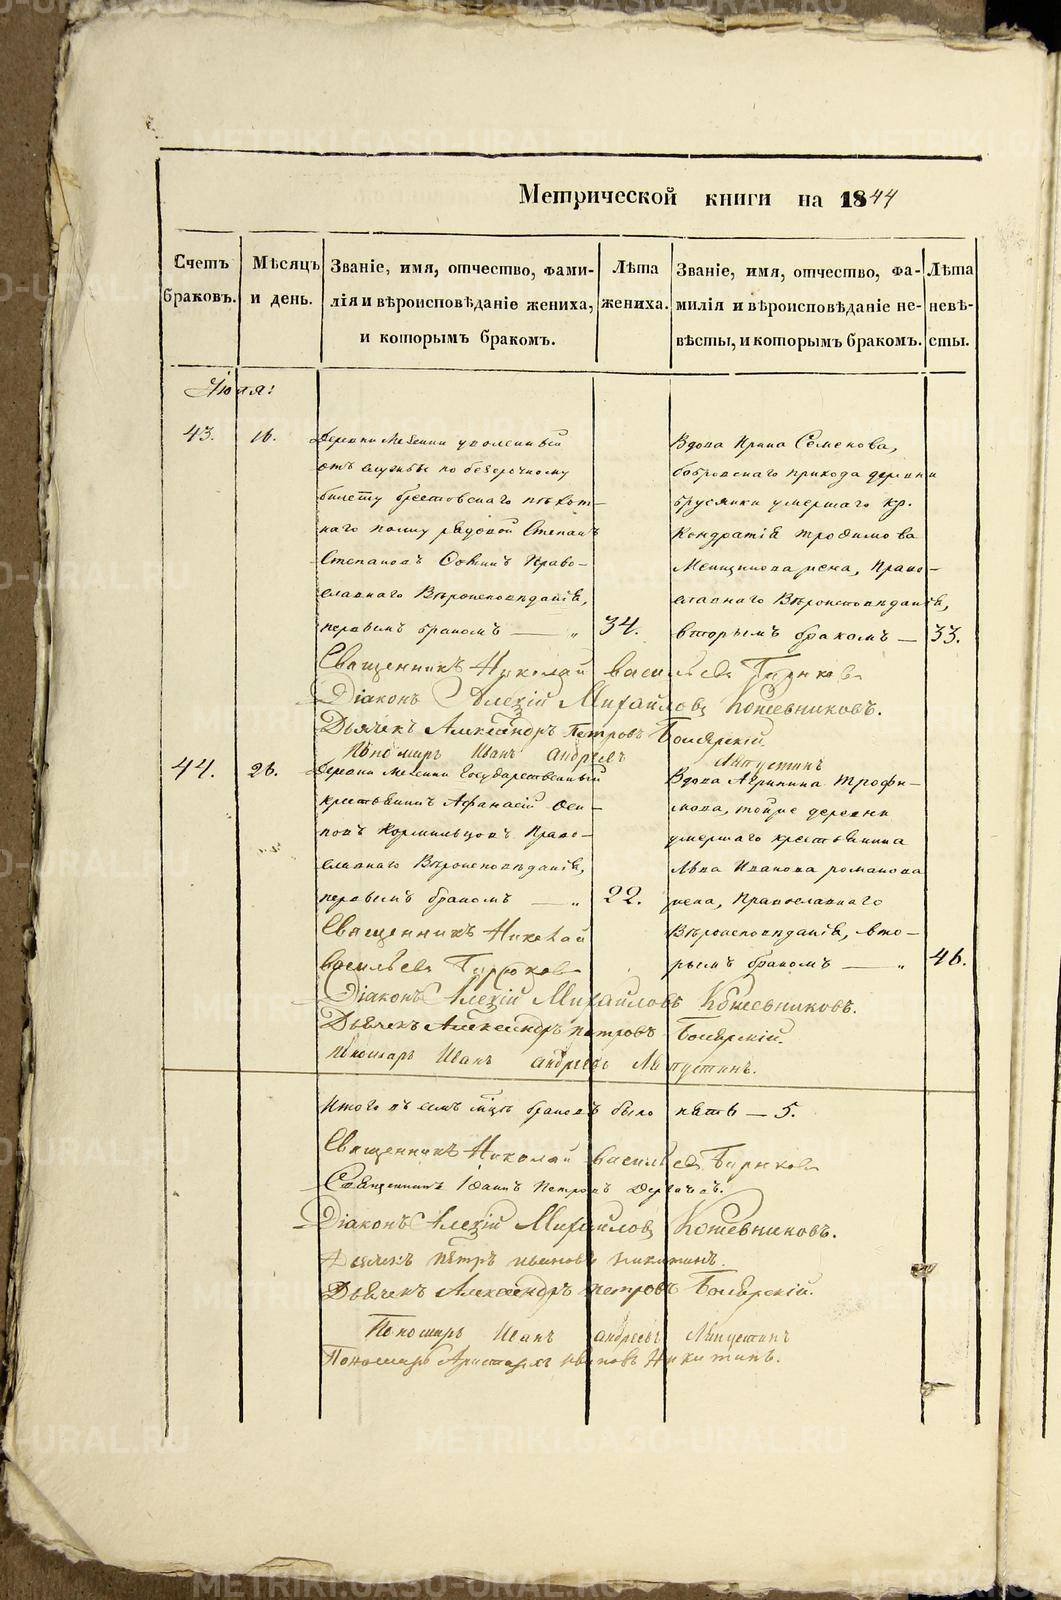 Метрической книги на 1844
Счетъ браковъ.
Мѣсяцъ и день.
Званіе, имя, отчество, фами-
лія и вѣроисповѣданіе жениха,
и которымъ бракомъ.
Лѣта
жениха.
Званіе, имя, отчество, фа-
милія и вѣроисповѣданіе не-
вѣсты, и которымъ бракомъ.
Лѣта
невѣ-
сты.
Іюля:
43.
16.
Деревни уволенный
отъ службы по безсрочному
билету брестовскаго пѣхот-
наго полку рядовой Степанъ
Степановъ Право-
славнаго Вѣроисповѣданія,
первымъ бракомъ — „
34.
Вдова Ирина Семенова,
бобровскаго прихода деревни
брусяник умершаго кр.
Кондратія трофимова
жена, Право-
славнаго Вѣроисповѣданія,
вторымъ бракомъ —
33.
Священникъ Николай Васильевъ Бирюковъ
Діаконъ Алексій Михайловъ Кожевниковъ.
Дьячекъ Александръ Петровъ Боярскій.
Пономарь Иванъ Андреевъ Лапустинъ
44.
26.
Деревни Государственный
крестьянинъ Афанасій Оси-
повъ Кормильцовъ Право-
славнаго Вѣроисповѣданія,
первымъ бракомъ — „
22.
Вдова Агрипина Трофи-
мова, тойже деревни
умершаго крестьянина
Льва Иванова романова
жена, Православнаго
Вѣроисповѣданія, вто-
рымъ бракомъ — „
46.
Священникъ Николай
Васильевъ Бирюковъ
Діаконъ Алексій Михайловъ Кожевниковъ.
Дьячекъ Александръ петровъ Боярскій.
Пономарь Иванъ андреевъ Лапустинъ.
Итого въ семъ мцѣ браковъ было пять — 5.
Священникъ Николай Васильевъ Бирюковъ
Священникъ Іоаннъ Петровъ
Діаконъ Алексій Михайловъ Кожевниковъ.
Дьячекъ петръ ивановъ никитинъ.
Дьячекъ Александръ петровъ Боярскій.
Пономарь Иванъ андреевъ Лапустинъ
Пономарь Аристархъ ивановъ Никитинъ.
METRIKI.GASO-URAL.RU